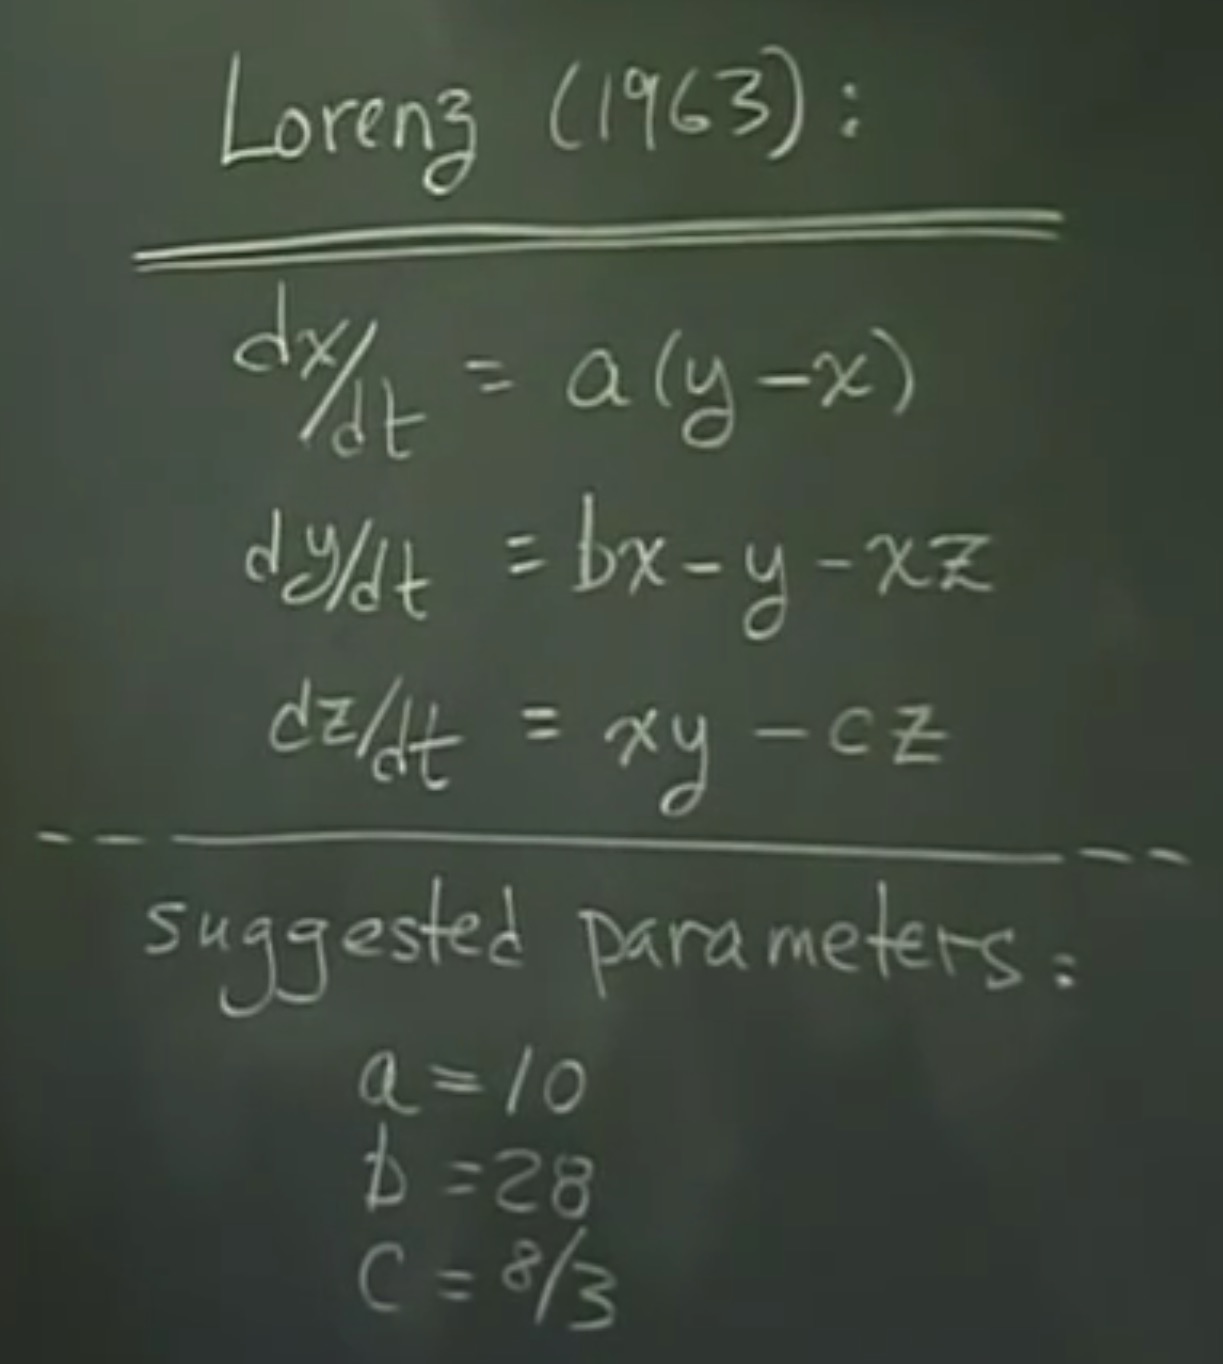 Lorenz (1963):
dx/dt = a(y-x)
dy/dt = bx-y-xz
dz/dt = xy-cz
suggested parameters:
a=10
b=28
c=8/3